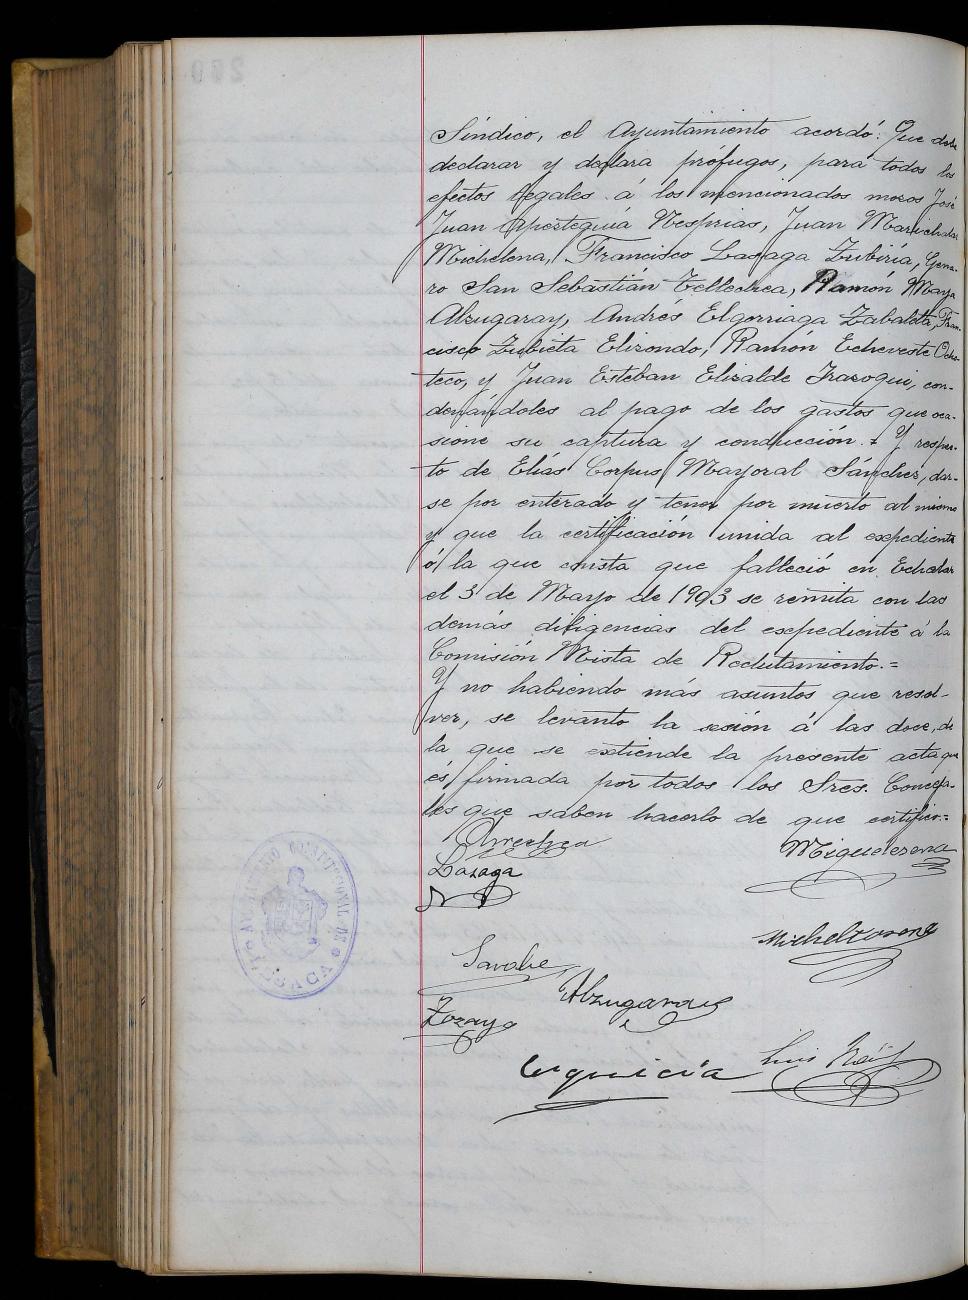 Síndico, el Ayuntamiento acordó: Que debe
declarar y declara prófugos, para todos los
efectos legales á los mencionados mozos José
Juan Apezteguía Nesprias, Juan Marichalar
Michelena, Francisco Lasaga Zubiría, Gena-
ro San Sebastián Tellechea, Ramón Maya
Alzugaray, Andrés Elgorriaga Zabaleta, Fran-
cisco Zubieta Elizondo, Ramón Echeveste Ocho-
teco, y Juan Esteban Elizalde Irazoqui, con-
denándoles al pago de los gastos que oca-
sione su captura y conducción.= Y respec-
to de Elías Corpus Mayoral Sánchez, dar-
se por enterado y tener por muerto al mismo
y que la certificación unida al expediente
ó la que consta que falleció en Echalar
el 3 de Mayo de 1903 se remita con las
demás diligencias del expediente á la
Comisión Mista de Reclutamiento.=
Y no habiendo más asuntos que resol-
ver, se levanto la sesión á las doce, de
la que se extiende la presente acta que
és firmada por todos los Sres. Conceja-
les que saben hacerlo de que certifico.=
Miguelerena
Lazaga
Micheltorena
Alzugaray
Zozaya
Luis
AYUNTAMIENTO CONSTITUCIONAL DE
LESACA